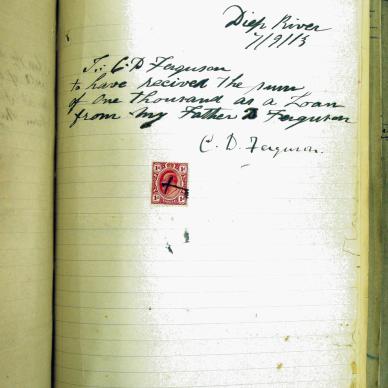 Diep River
7/9/13
I: C. D Ferguson
to have recived the sum
of One Thousand as a Loan
from my Father D Ferguson
C. D. Ferguson.